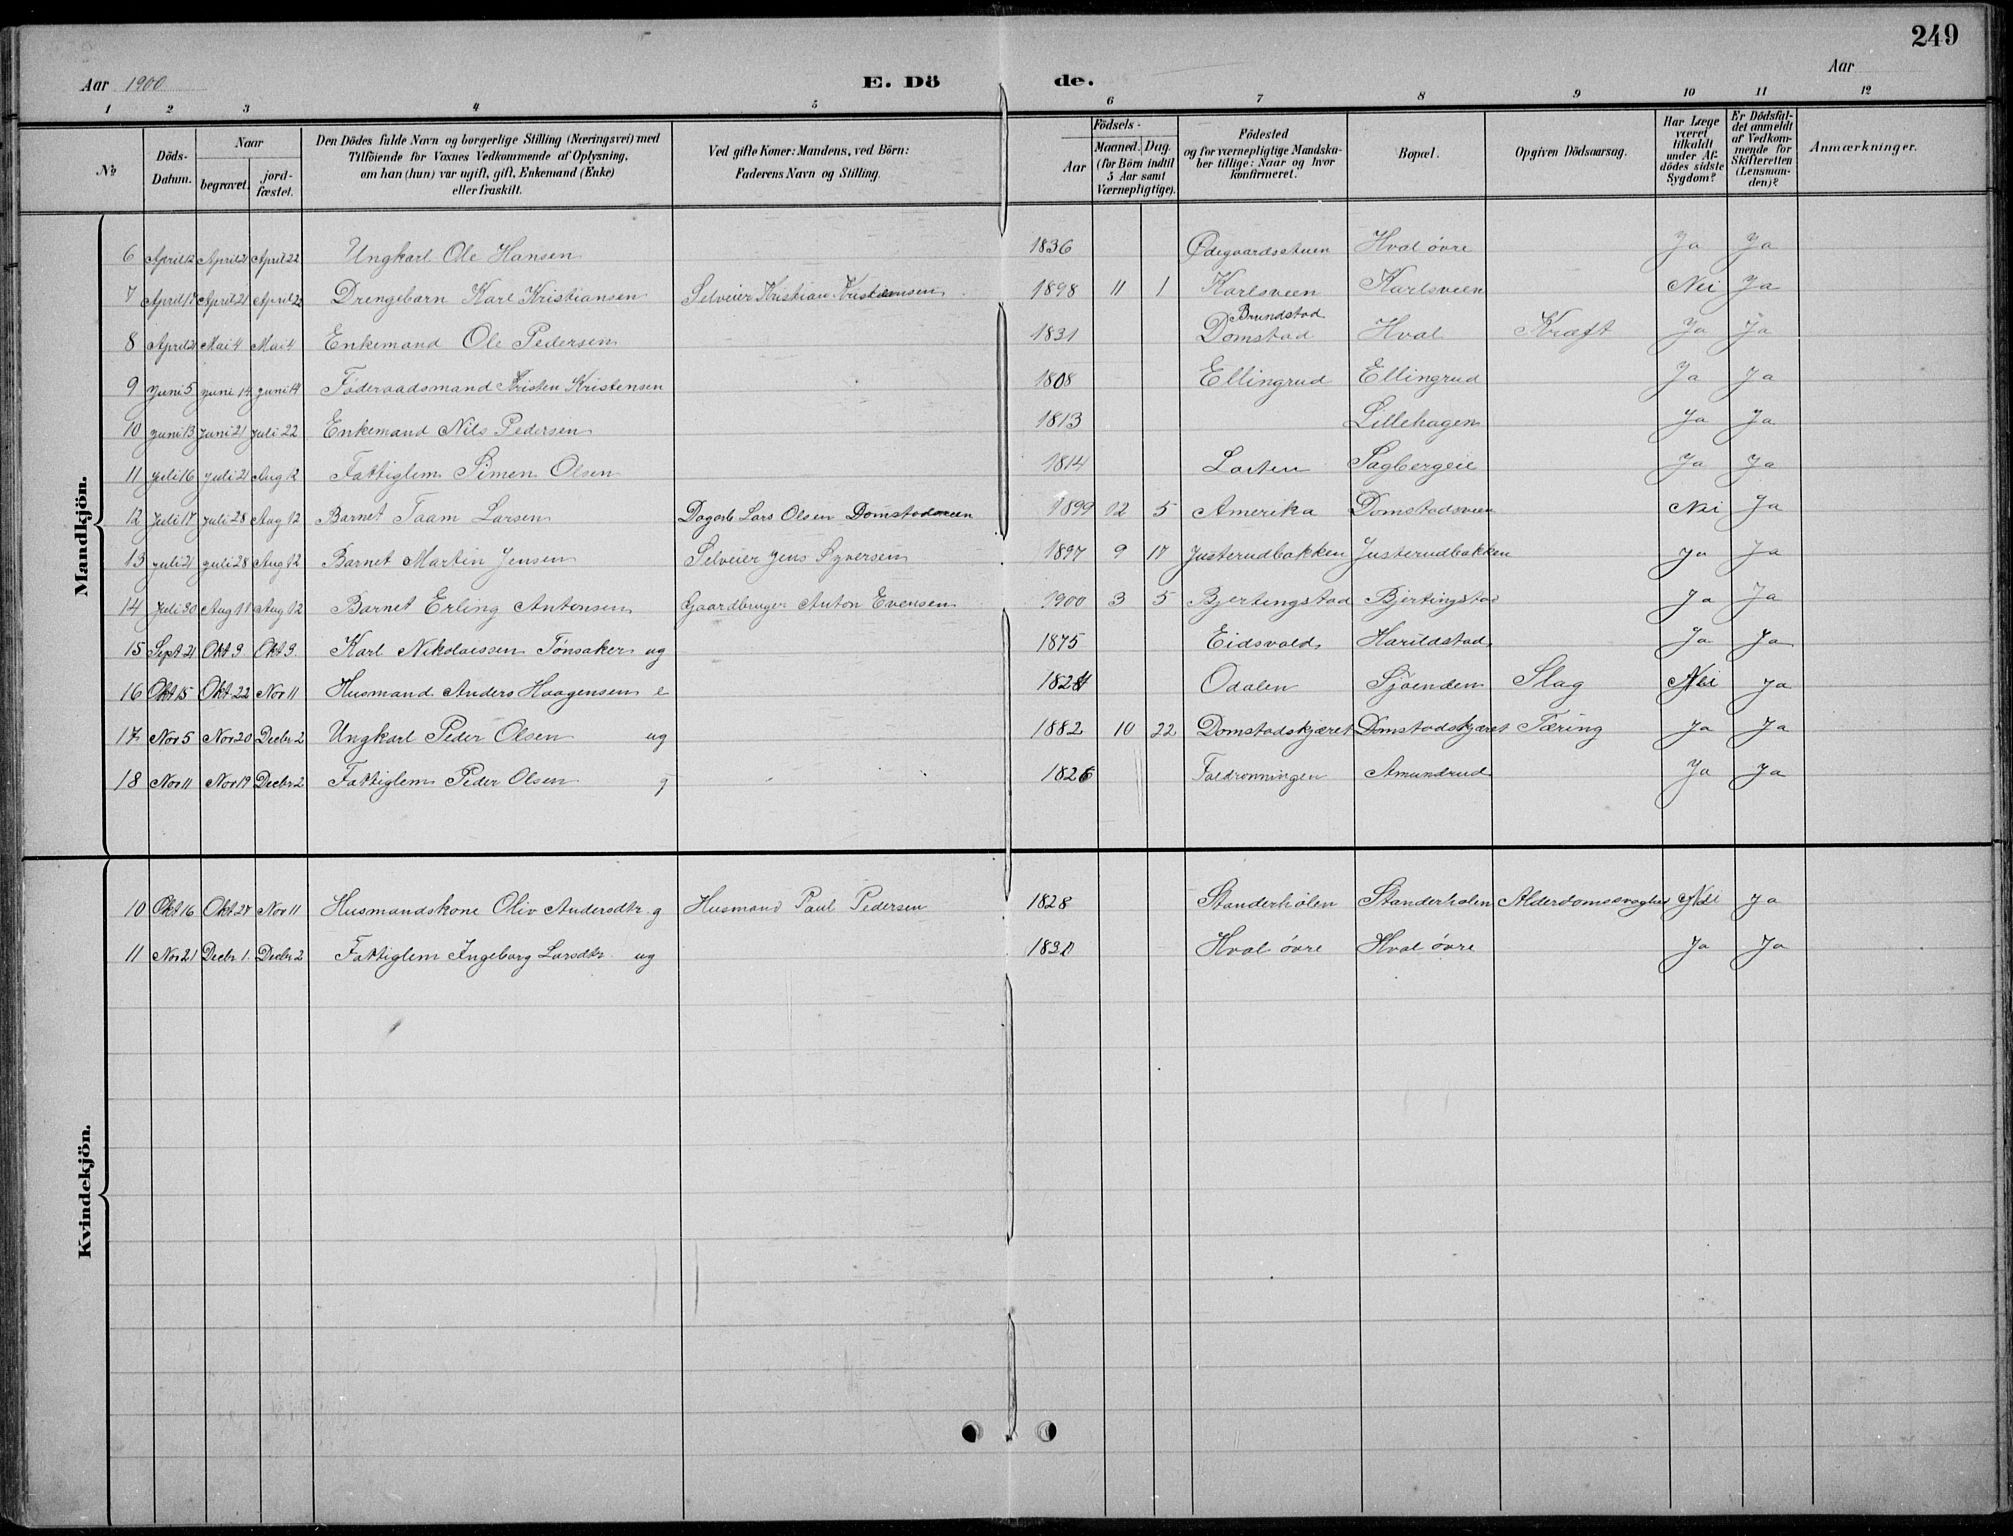 249
Aar 1900 E. Dö de. Aar
1 2 3 4 5 6 7 8 9 10 11 12
No
Döds-Datum.
Naar
begravet.
jord-fæstet.
Den Dödes fulde Navn og borgerlige Stilling (Næringsvei) med
Tilföiende for Voxnes Vedkommende af Oplysning,
om han (hun) var ugift, gift, Enkemand (Enke)
eller fraskilt.
Ved gifte Koner: Mandens, ved Börn:
Faderens Navn og Stilling.
Födsels-
Aar
Maaned. Dag.
(for Börn indtil
5 Aar samt
Værnepligtige).
Födested
og for værnepligtige Mandska-
ber tillige: Naar og hvor
konfirmeret.
Bopæl.
Opgiven Dödsaarsag.
Har Læge
været
tilkaldt
under Af-
dödes sidste
Sygdom?
Er Dödsfal-
det anmeldt
af Vedkom-
mende for
Skifteretten
(Lensman-
den)?
Anmærkninger.
Mandkjön.
6 April 12 April 21 April 22 Ungkarl Ole Hansen 1836 Ødegaardsstuen Hval övre Ja Ja
7 April 17 April 21 April 22 Drengebarn Karl Kristiansen Selveier Kristian Kristiansen 1898 11 1 Karlsveen Karlsveen Nei Ja
Brundstad
8 April 21 Mai 4 Mai 4 Enkemand Ole Pedersen 1831 Domstad Hval Kræft Ja Ja
9 Juni 5 Juni 14 Juni 14 Föderaadsmand Kristen Kristensen 1808 Ellingrud Ellingrud Ja Ja
10 Juni 13 Juni 21 Juli 22 Enkemand Nils Pedersen 1813 Lillehagen Ja Ja
11 Juli 16 Juli 21 Aug 12 Fattiglem Simen Olsen 1814 Sagbergeie Ja Ja
12 Juli 17 Juli 28 Aug 12 Barnet Taam Larsen Dagarb Lars Olsen Domstadsveen 1899 12 5 Amerika Domstadsveen Nei Ja
13 Juli 21 Juli 28 Aug 12 Barnet Martin Jensen Selveier Jens Syversen 1897 9 17 Justerudbakken Justerudbakken Ja Ja
14 Juli 30 Aug 11 Aug 12 Barnet Erling Antonsen Gaardbruger Anton Evensen 1900 3 5 Bjertingstad Bjertingstad Ja Ja
15 Sept 21 Okt 9 Okt 9. Karl Nikolaissen Tönsaker ug 1875 Eidsvold Harildstad Ja Ja
16 Okt 15 Okt 22 Nov 11 Husmand Anders Haagensen e 1824 Odalen Sjöenden Slag Nei Ja
17 Nov 5 Nov 20 Decbr 2 Ungkarl Peder Olsen ug 1882 10 22 Domstadskjæret Domstadskjæret Tæring Ja Ja
18 Nov 11 Nov 19 Decbr 2 Fattiglem Peder Olsen g 1826 Faldronningen Amundrud Ja Ja
Kvindekjön.
10 Okt 16 Okt 27 Nov 11 Husmandskone Oliv Andersdtr. g Husmand Paul Pedersen 1828 Standerholen Standerholen Alderdomssvaghed Nei Ja
11 Nov 21 Decbr 1. Decbr 2 Fattiglem Ingeborg Larsdtr ug 1830 Hval övre Hval övre Ja Ja